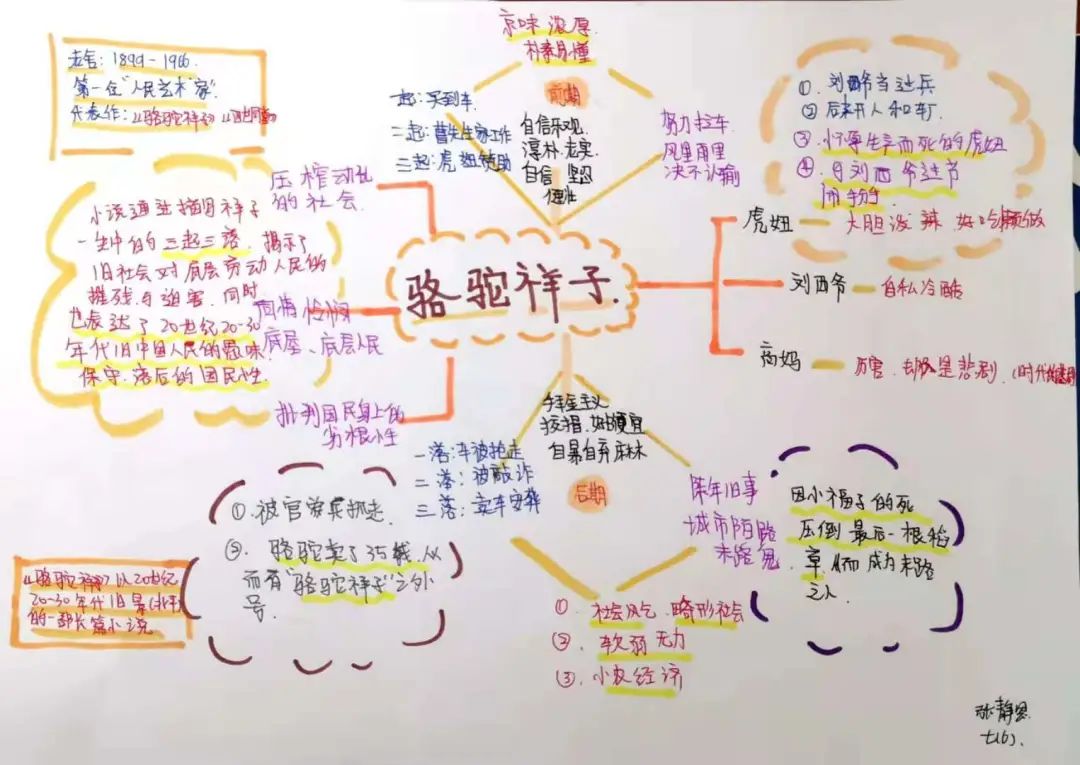 老舍：1899-1966
第一位“人民艺术家”.
代表作：《骆驼祥子》《四世同堂》
京味浓厚.
朴素易懂
前期
一起：买到车.
二起：曹先生家工作
三起：虎妞赞助
自信乐观.
淳朴.老实.
自信 坚忍
健壮
努力拉车
风里雨里
决不认输
①. 刘四爷当过兵
② 后来开人和车厂
③. 怀孕生子而死的虎妞
④. 与刘四爷过节
闹掰
压榨动乱
的社会.
小说通过描写祥子
一生中的三起三落. 揭示了
旧社会对底层劳动人民的
摧残与迫害. 同时
也表达了20世纪20-30
年代旧中国人民的愚昧.
保守.落后的国民性.
同情怜悯
底层、底层人民
批判国民身上的
劣根性
骆驼祥子.
虎妞
大胆泼辣 好吃懒做
刘四爷
自私冷酷
高妈
厉害.却是悲剧.
一落：车被抢走
二落：被敲诈
三落：卖车安葬
自暴自弃麻木
后期
陈年旧事
城市陌路
末路鬼
因小福子的死
压倒最后一根稻
草.从而成为末路
之人.
①.被官兵抓走.
②. 骆驼卖了35钱.从
而有“骆驼祥子”之外
号.
《骆驼祥子》以20世纪
20-30年代旧
的一部长篇小说
①. 社会风气. 畸形社会
②. 软弱无力
③. 小农经济
张静思.
七(6).